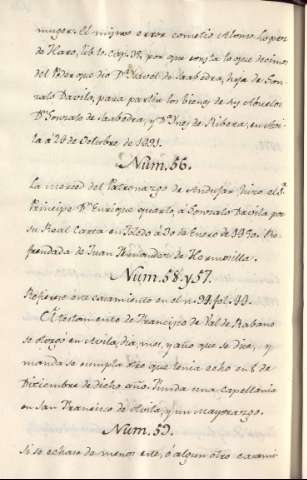 muger. El mismo error cometio Alonso Lopez
de Haro, lib. 10. cap. 38. por que consta lo que decimos
del Poder que dio Dª Isavel de Saabedra, hija de Gon-
zalo Davila, para partir los bienes de sus Abuelos
Dn Gonzalo de Saabedra, y Dª Ynes de Ribera, en Avi-
la á 28 de Octubre de
Num. 56.
La merced del Patronazgo de Andujar hizo el Sr
Principe Dn Enrique quarto, á Gonzalo Davila por
su Real Carta en Toledo á 30 de Enero de Re-
frendada de Juan Fernandez de Hermosilla.
Num. 58. y 57.
Refierese este casamiento en el n. 94. fol. 44.
El testamento de Francisco de Val de Rabano
se otorgo en Avila, dia, mes, y año que se dice, y
manda se cumpla otro que tenia echo en 6 de
Diciembre de dicho año. Funda una Capellania
en San Francisco de Avila, y un Mayorazgo.
Num. 59.
Si se echase de menos este, ó algun otro casami-